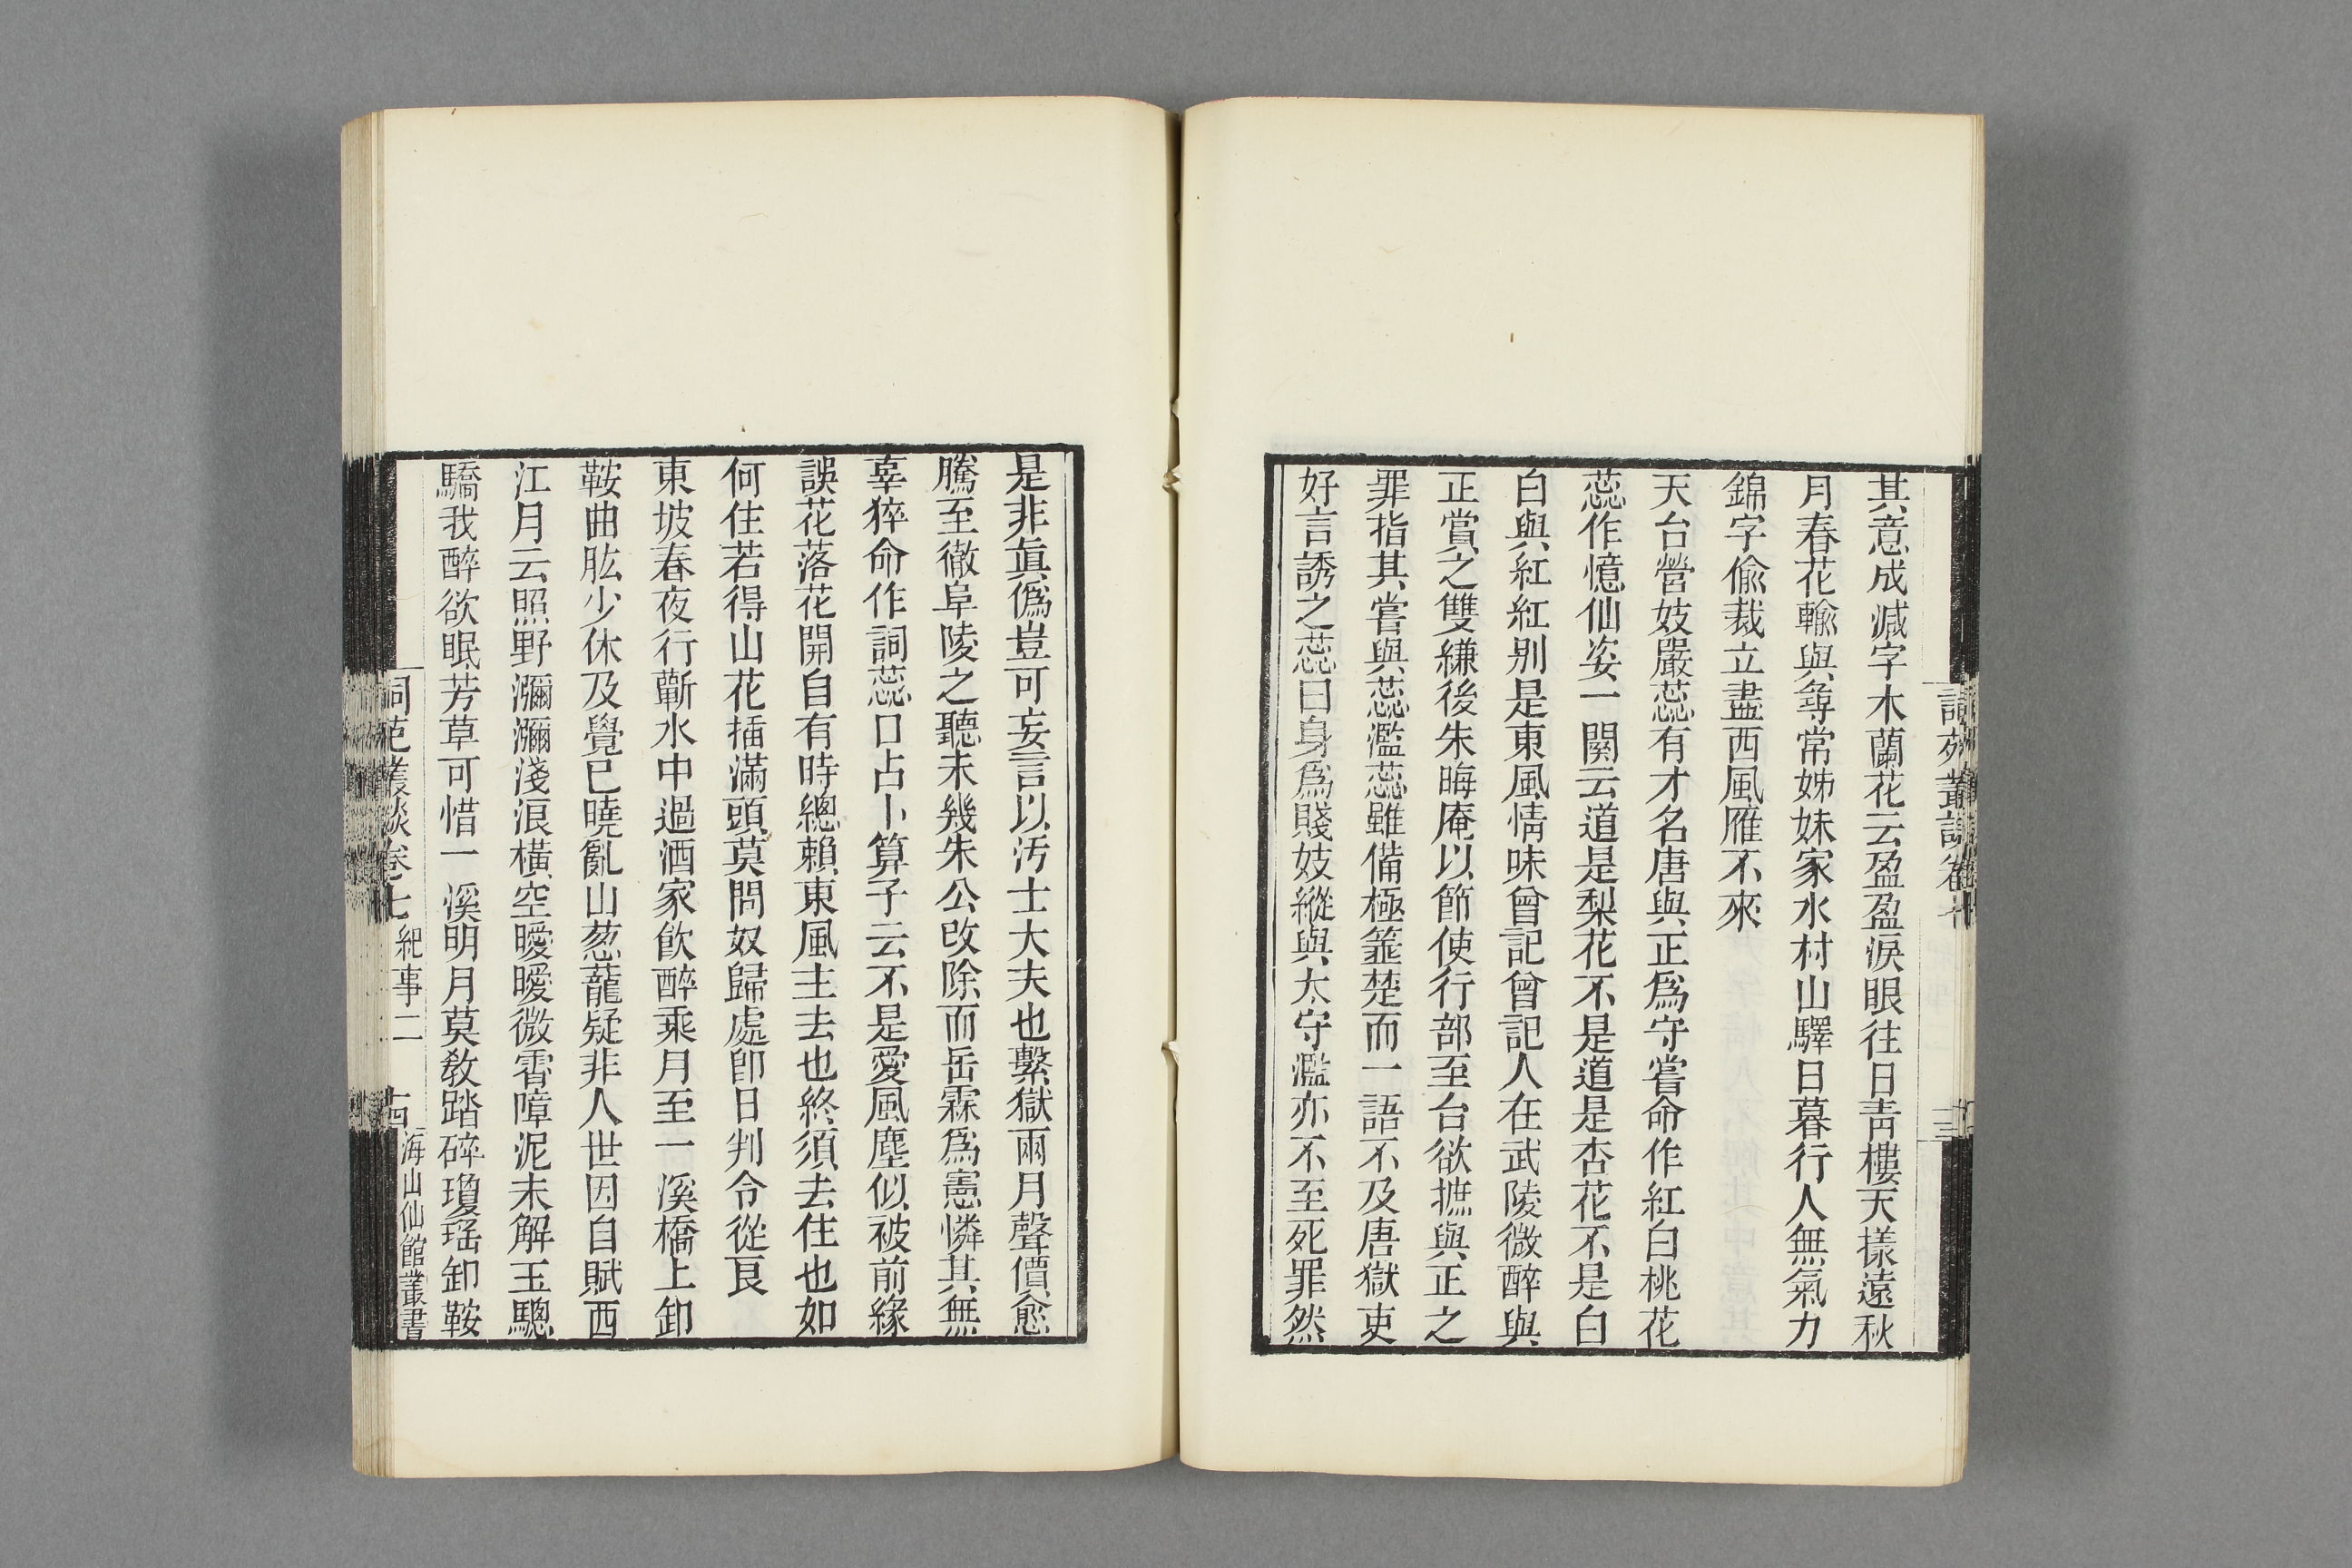 其意成減字木蘭花云盈盈淚眼往日青樓天樣遠秋
月春花輸與尋常姊妹家水村山驛日暮行人無氣力
錦字偷裁立盡西風雁不來
天台營妓嚴蕊有才名唐與正爲守嘗命作紅白桃花
蕊作憶仙姿一闋云道是梨花不是道是杏花不是白
白與紅紅別是東風情味曾記曾記人在武陵微醉與
正賞之雙縑後朱晦庵以節使行部至台欲摭與正之
罪指其嘗與蕊濫蕊雖備極箠楚而一語不及唐獄吏
好言誘之蕊曰身爲賤妓縱與太守濫亦不至死罪然
是非眞僞豈可妄言以汚士大夫也繫獄兩月聲價愈
騰至徹阜陵之聽未幾朱公改除而岳霖爲憲憐其無
辜猝命作詞蕊口占卜算子云不是愛風塵似被前緣
誤花落花開自有時總賴東風主去也終須去住也如
何住若得山花插滿頭莫問奴歸處卽日判令從良
東坡春夜行蘄水中過酒家飮醉乘月至一溪橋上卸
鞍曲肱少休及覺已曉亂山葱蘢疑非人世因自賦西
江月云照野瀰瀰淺浪橫空曖曖微霄障泥未解玉驄
驕我醉欲眠芳草可惜一溪明月莫敎踏碎瓊瑤卸鞍
詞苑叢談卷七 紀事二 十四 海山仙館叢書